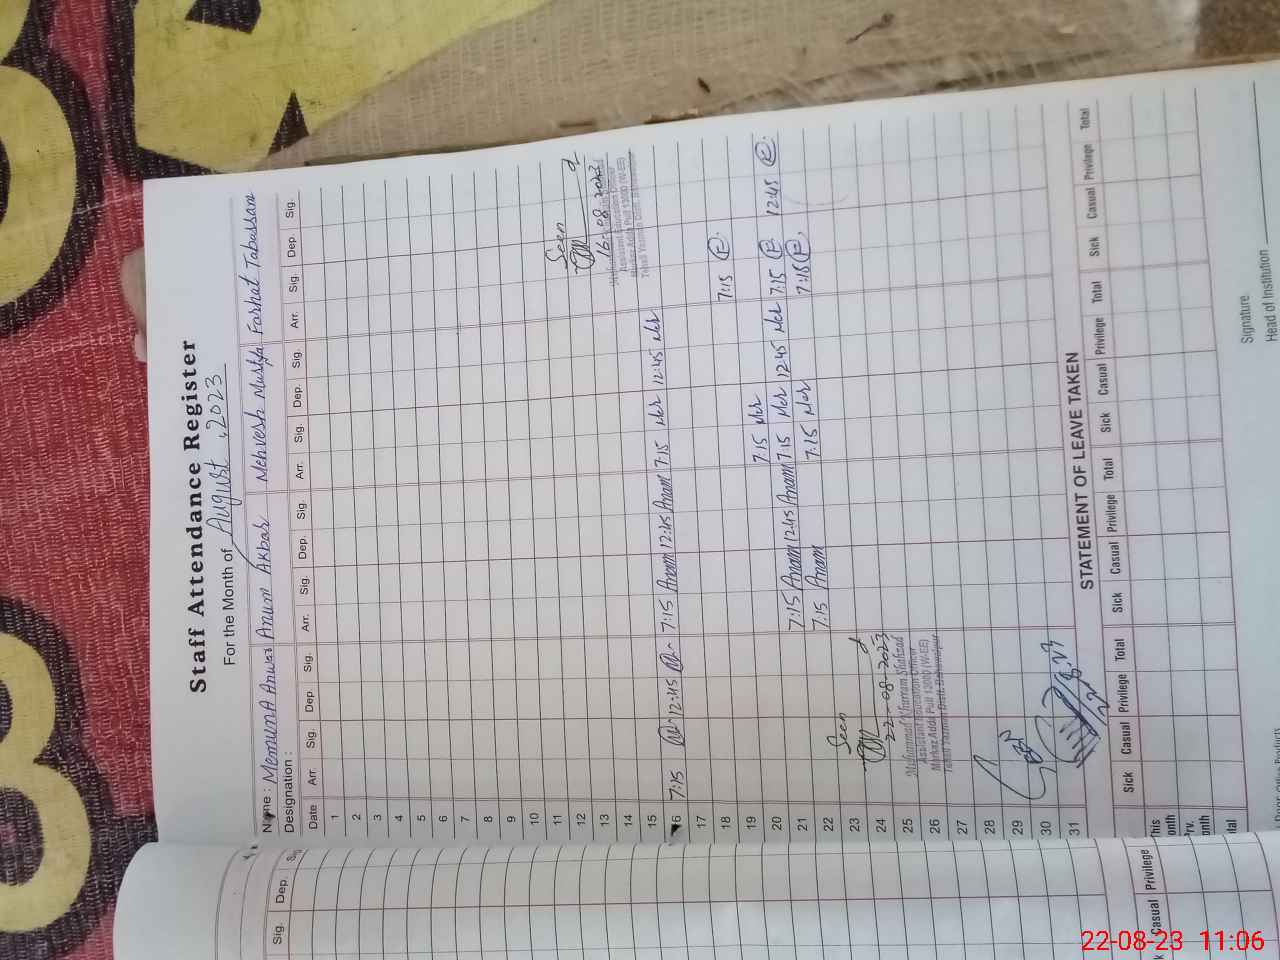 Staff Attendance Register
For the Month of August, 2023
Name: Memuna Anwar Anum Akbar Mehvesh Mustfa Farhat Tabassam
Designation:
Date Arr. Sig. Dep Sig. Arr. Sig. Dep. Sig. Arr. Sig. Dep. Sig. Arr. Sig. Dep Sig.
1
2
3
4
5
6
7
8
9
10
11
12
13
14
15
16 7:15 12:45 7:15 Anam 12:45 Anam 7:15 Meh 12:45 Meh
17
18 7:15
19 7:15 Meh
20 7:15 Anam 12:45 Anam 7:15 Meh 12:45 Meh 7:15 12:45
21 7:15 Anam 7:15 Meh 7:15
22
23
24
25
26
27
28
29
30
31
Seen
16-08-2023
Assistant Education Officer
Markaz Adda Pull 13000 (W-EE)
Tehsil Yazman Distt. Bahawalpur
Seen
22-08-2023
Muhammad Khurram Shahzad
Assistant Education Officer
Markaz Adda Pull 13000 (W-EE)
Tehsil Yazman Distt. Bahawalpur
STATEMENT OF LEAVE TAKEN
Sick Casual Privilege Total Sick Casual Privilege Total Sick Casual Privilege Total Sick Casual Privilege Total
This
Prv.
Signature
Head of Institution
Sig. Dep. Sig.
Casual Privilege
22-08-23 11:06